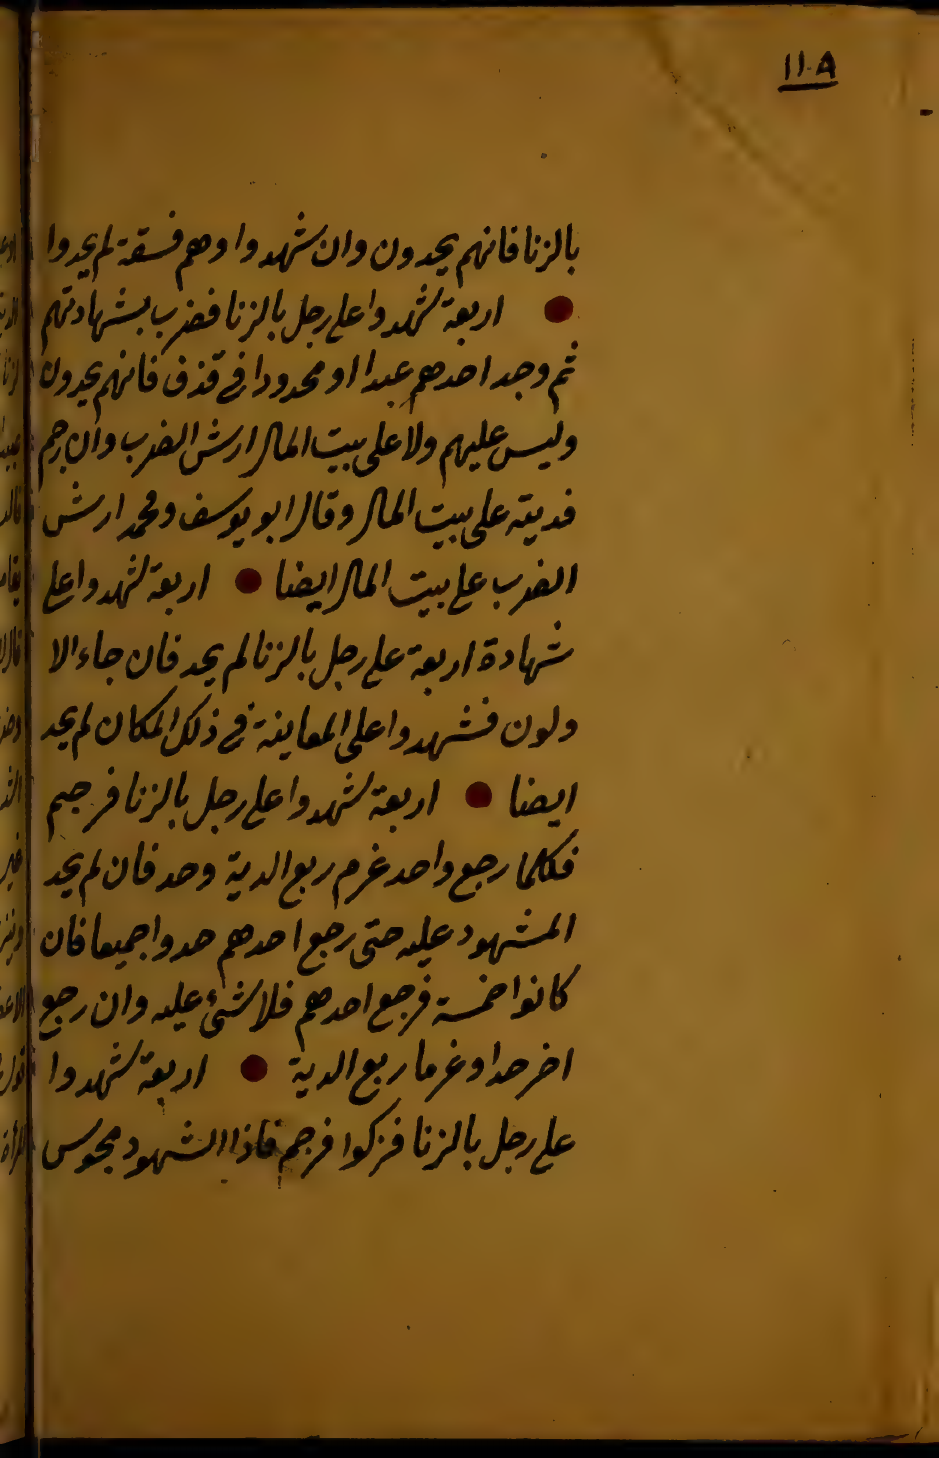 ١١٠٨
بالزنا فانهم يحدون وان شهدوا وهم فسقة لم يحدوا
اربعة شهدوا على رجل بالزنا فضرب بشهادتهم
ثم وجد احدهم عبدا او محدودا في قذف فانهم يحدون
وليس عليهم ولا على بيت المال ارش الضرب وان رجم
فديته على بيت المال وقال ابو يوسف ومحمد ارش
الضرب على بيت المال ايضا اربعة شهدوا على
شهادة اربعة على رجل بالزنا لم يحد فان جاء الا
ولون فشهدوا على المعاينة في ذلك المكان لم يحد
ايضا اربعة شهدوا على رجل بالزنا فرجم
فكلما رجع واحد غرم ربع الدية وحد فان لم يحد
المشهود عليه حتى رجع احدهم حدوا جميعا فان
كانوا خمسة فرجع احدهم فلا شئ عليه وان رجع
اخر حدا وغرما ربع الدية اربعة شهدوا
على رجل بالزنا فزكوا فرجم فاذا الشهود مجوس